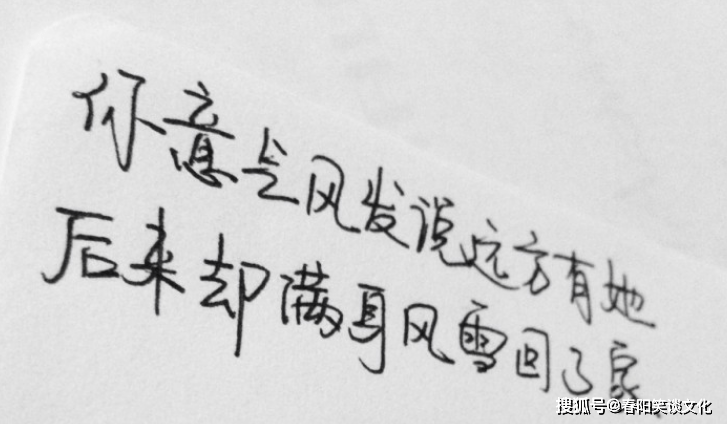 你意气风发说远方有她
后来却满身风雪回了家
搜狐号@春阳笑谈文化